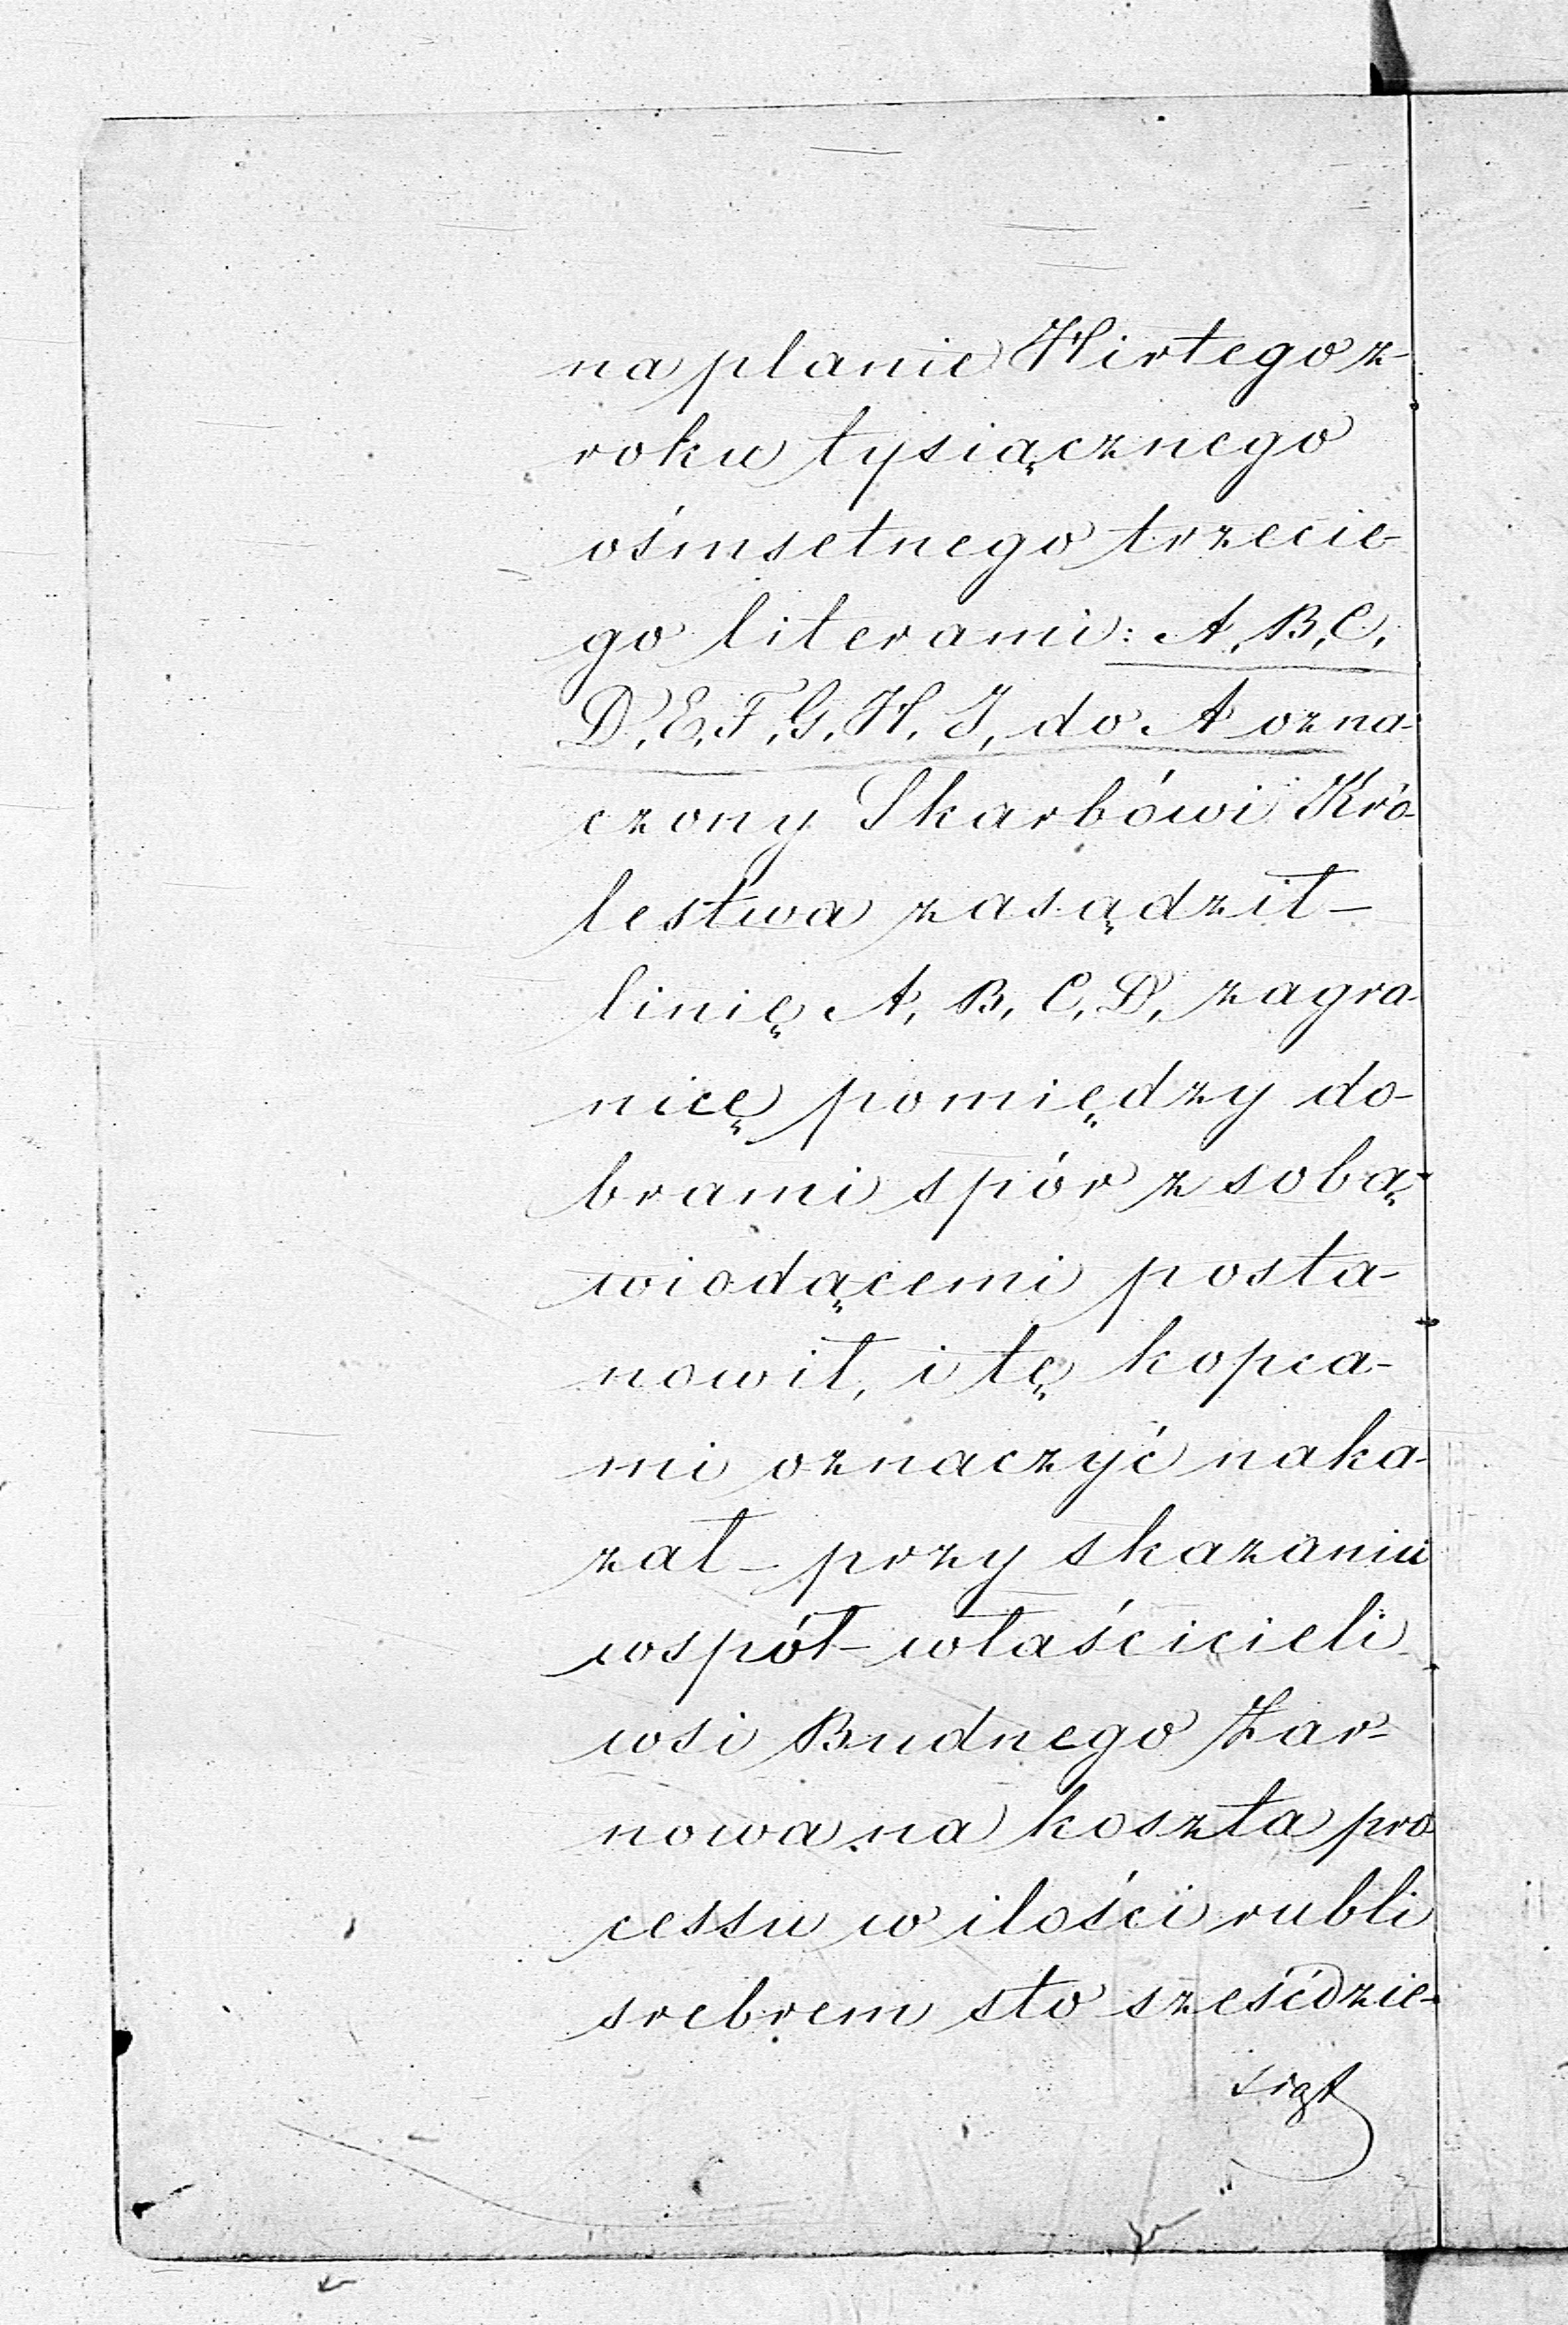 na planie Hirtego z
roku tysiącznego
ośmsetnego trzecie-
go literami: A, B, C,
D, E, F, G, H, I, do A ozna-
czony Skarbówi Kró-
lestwa zasądził –
linię A, B, C, D, zagra-
nicę pomiędzy do-
brami spór z sobą
wiodącemi posta-
nowił, i tę kopca-
mi oznaczyć naka-
zał – przy skazaniu
wspól-właścicieli
wsi Budnego Żar-
nowa na koszta pro
cessu w ilości rubli
srebrem sto sześćdzie-
siąt